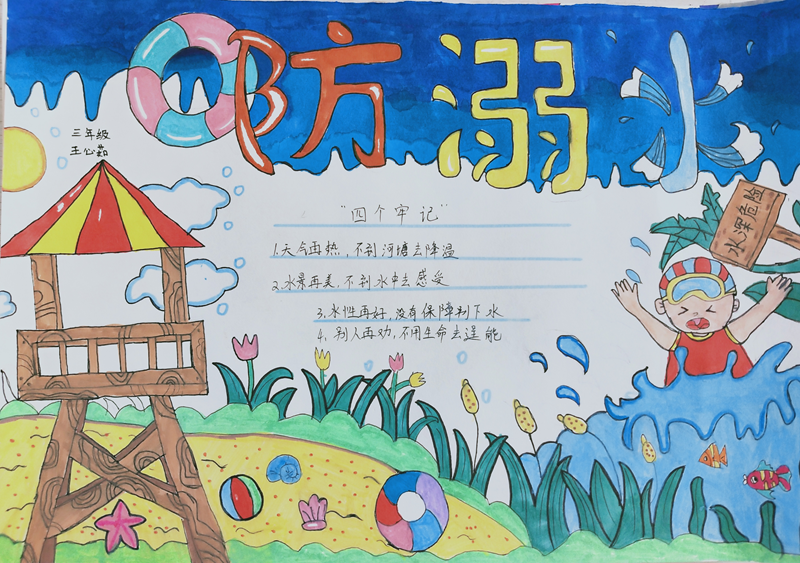 防溺水
三年级
王心茹
水深危险
"四个牢记"
1.天气再热,不到河塘去降温
2.水景再美,不到水中去感受
3.水性再好,没有保障别下水
4.别人再劝,不用生命去逞能